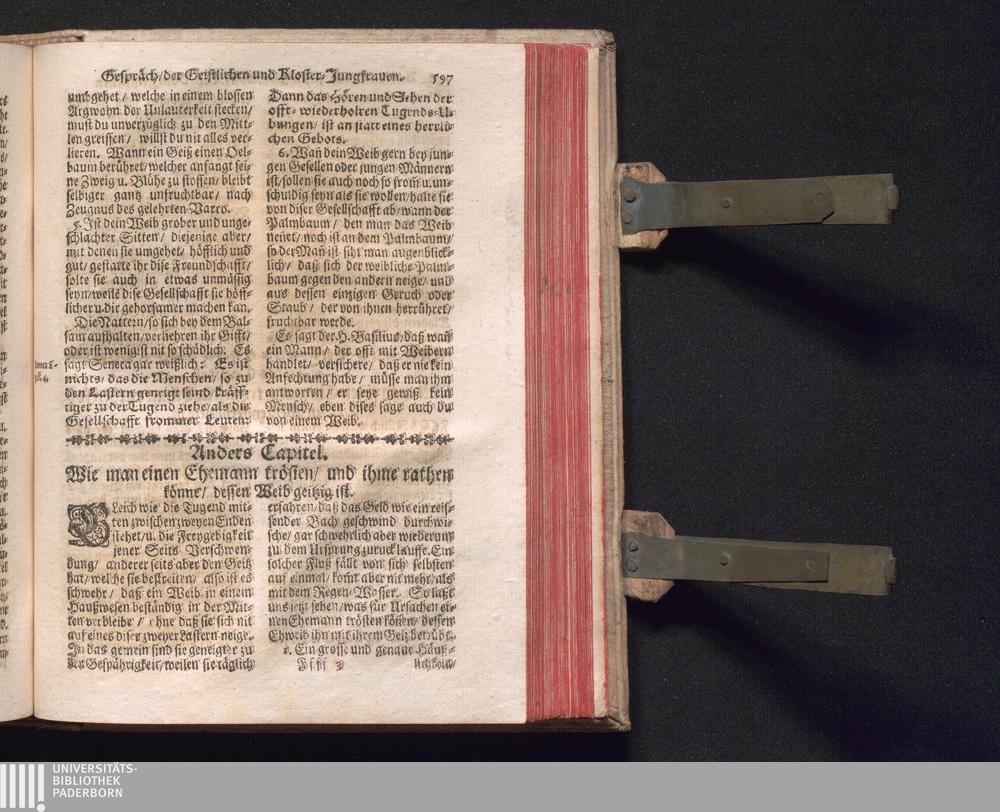 Gespräch/der Geistlichen und Kloster-Jungfrauen. 597
umbgehet / welche in einem blossen
Argwohn der Unlauterkeit stecken/
must du unverzüglich zu den Mitt-
len greiffen / willst du nit alles ver-
lieren. Wann ein Geiß einen Oel-
baum berühret/welcher anfangt sei-
ne Zweig u. Blühe zu stossen/ bleibt
selbiger gantz unfruchtbar/ nach
Zeugnus des gelehrten Varro.
5. Ist dein Weib grober und unge-
schlachter Sitten/ diejenige aber/
mit denen sie umgehet/ höfflich und
gut/ gestatte ihr dise Freundschafft/
solte sie auch in etwas unmässig
seyn/weile dise Gesellschafft sie höff-
licher u.dir gehorsamer machen kan.
Die Nattern/so sich bey dem Bal-
sam aufhalten/verliehren ihr Gifft/
oder ist wenigist nit so schädlich. Es
sagt Seneca gar weißlich: Es ist
nichts/ das die Menschen/ so zu
den Lastern geneigt seind/kräff-
tiger zu der Tugend ziehe/als die
Gesellschafft frommer Leuten:
Dann das Hören und Sehen der
offt-wiederholten Tugends-U-
bungen/ ist an statt eines herrli-
chen Gebots.
6. Wañ dein Weib gern bey jun-
gen Gesellen oder jungen Männern
ist/sollen sie auch noch so from̃ u.un-
schuldig seyn als sie wollen/halte sie
von diser Gesellschafft ab/wann der
Palmbaum / den man das Weib
neñet/ noch ist an dem Palmbaum/
so der Mañ ist siht man augenblick-
lich/ daß sich der weibliche Palm-
baum gegen den andern neige/ und
aus dessen einzigen Geruch oder
Staub / der von ihnen herrühret/
fruchtbar werde.
Es sagt der H. Basilius/daß wañ
ein Mann/ der offt mit Weibern
handlet/ versichere/ daß er nie kein
Anfechtung habe/ müsse man ihm
antworten/ er seye gewiß kein
Mensch/ eben dises sage auch du
von einem Weib.
Anders Capitel.
Wie man einen Ehemann trösten/ und ihme rathen
könne/ dessen Weib geitzig ist.
GLeich wie die Tugend mit-
ten zwischen zweyen Enden
stehet/u. die Freygebigkeit
jener Seits Verschwen-
dung/ anderer seits aber den Geitz
hat/ welche sie bestreiten/ also ist es
schwehr/ daß ein Weib in einem
Haußwesen beständig in der Mit-
ten verbleibe/ ohne daß sie sich nit
auf eines diser zweyer Lastern neige.
In das gemein sind sie geneigter zu
der Gespährigkeit/weilen sie täglich
erfahren/daß das Geld wie ein reis-
sender Bach geschwind durchwi-
sche/ gar schwehrlich aber wiederum
zu dem Ursprung zuruck lauffe. Ein
solcher Fluß fällt von sich selbsten
auf einmal/ kom̃t aber nit mehr/als
mit dem Regen-Wasser. So lasst
uns jetzt sehen/was für Ursachen ei-
nen Ehemann trösten köñen/ dessen
Eheweib ihn mit ihrem Geitz betrübt.
1. Ein grosse und genaue Häuß-
lichkeit/
UNIVERSITÄTS-
BIBLIOTHEK
PADERBORN